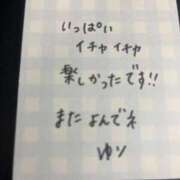 いっぱい
イチャイチャ
楽しかったです!!
またよんでネ
ゆり